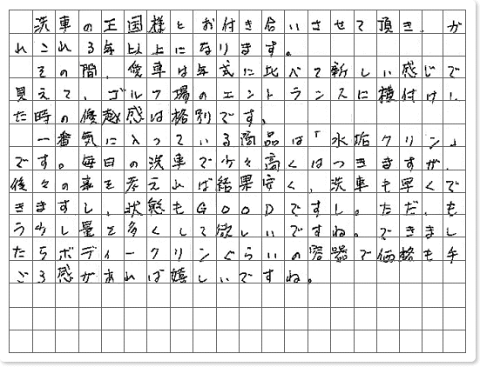 洗車の王国様とお付き合いさせて頂き、か
れこれ3年以上になります。
その間、愛車は年式に比べて新しい感じで
見えて、ゴルフ場のエントランスに横付けし
た時の優越感は格別です、
一番気に入っている商品は「水垢クリン」
です。毎日の洗車で少々高くはつきますが、
後々の事を考えれば結果安く、洗車も早くで
きますし、状態もGOODですし。ただ、も
う少し量を多くして欲しいですね。できまし
たらボディークリンぐらいの容器で価格も手
ごろ感があれば嬉しいですね。